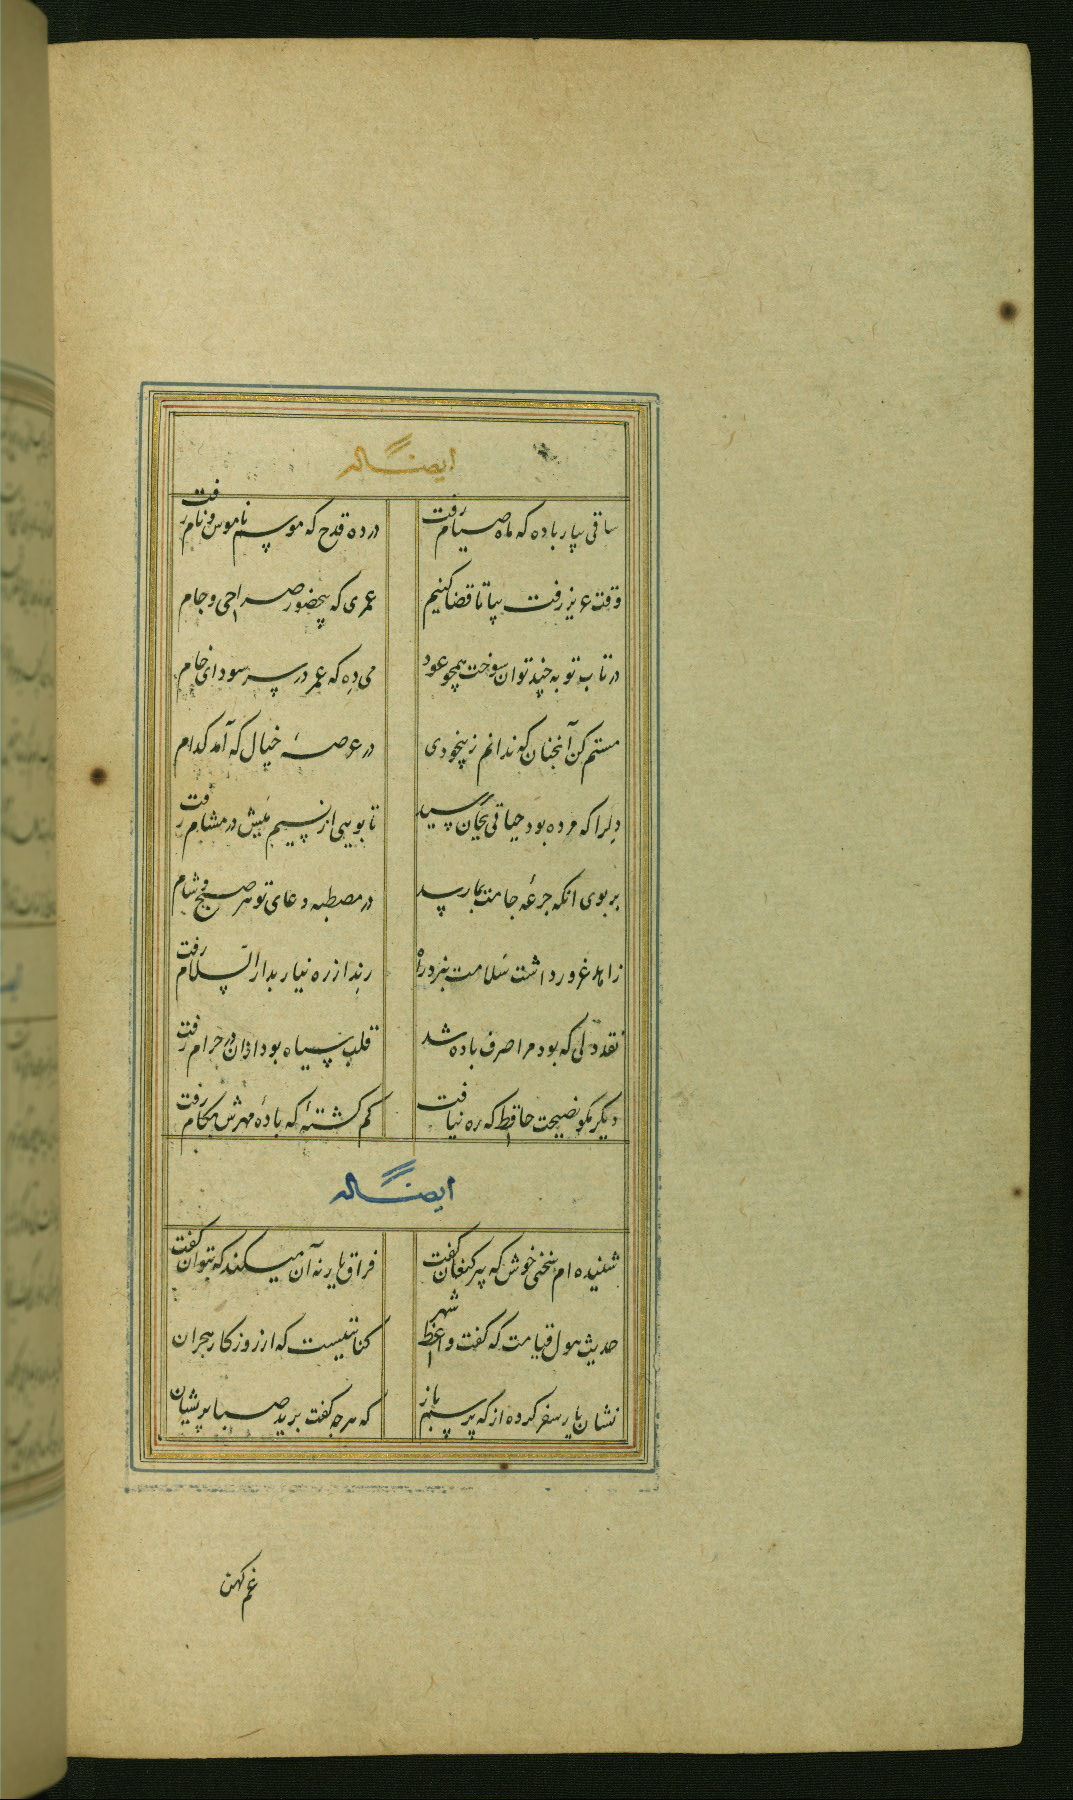 ایضاً له
ساقی بیار باده که ماه صیام رفت درده قدح که موسم ناموس و نام رفت
وقت عزیز رفت بیا تا قضا کنیم عمری که بیحضور صراحی و جام
در تاب توبه چند توان سوخت همچو عود می ده که عمر در سر سودای خام
مستم کن آنچنان که ندانم ز بیخودی در عرصهٔ خیال که آمد کدام
دلرا که مرده بود حیاتی بجان رسید تا بویی از نسیم میش در مشام رفت
بر بوی آنکه جرعهٔ جامت بما رسد در مصطبه دعای تو هر صبح و شام
زاهد غرور داشت سلامت نبرد راه رند از ره نیاز بدار السلام رفت
نقد دلی که بود مرا صرف باده شد قلب سیاه بود ازان در حرام رفت
دیگر مگو نصیحت حافظ که ره نیافت گم گشتهٔ که بادهٔ مهرش بکام رفت
ایضاً له
شنیده ام سخنی خوش که پیر کنعان گفت فراق یار نه آن میکند که بتوان گفت
حدیث هول قیامت که گفت واعظ شهر کنایتیست که از روزگار هجران
نشان یار سفر کرده از که پرسم باز که هرچه گفت برید صبا پریشان
غم کهن